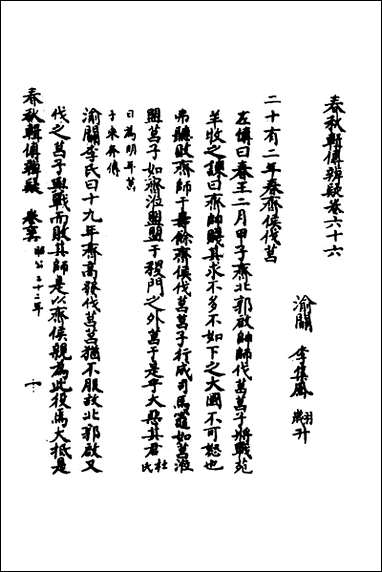 春秋輯傳辨疑卷六十六
渝關 李集鳳 翽升
二十有二年春齊侯伐莒
左傳曰春王二月甲子齊北郭啟帥師伐莒莒子將戰苑
羊牧之諫曰齊帥賤其求不多不如下之大國不可怒也
弗聽敗齊師于壽餘齊侯伐莒莒子行成司馬竈如莒涖
盟莒子如齊涖盟盟于稷門之外莒于是乎大惡其君 杜氏
曰為明年莒
子來奔傳
渝關李氏曰十九年齊高發伐莒莒猶不服故北郭啟又
伐之莒子與戰而敗其師是以齊侯親為此役焉大抵是
春秋輯傳辨疑 卷六六 昭公二十二年 一